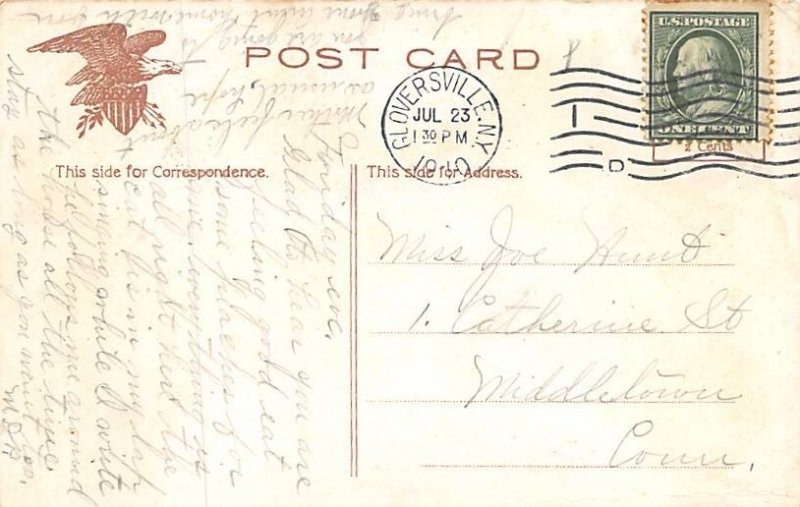 POST CARD
This side for Correspondence.
This side for Address.
GLOVERSVILLE, N.Y.
JUL 23
1 30 PM
1910
D
U.S. POSTAGE
ONE CENT
2 Cents
Miss Joe Hunt
1. Catherine St
Middletown
Conn,
Friday eve,
Glad to hear you are
feeling good eat
some peaches for
me, everything is
all right here the
cat is in my lap
singing while I write
he follows me around
the house all the time
stay as long as you want to,
Mother feels about
as usual, hope
you are going to